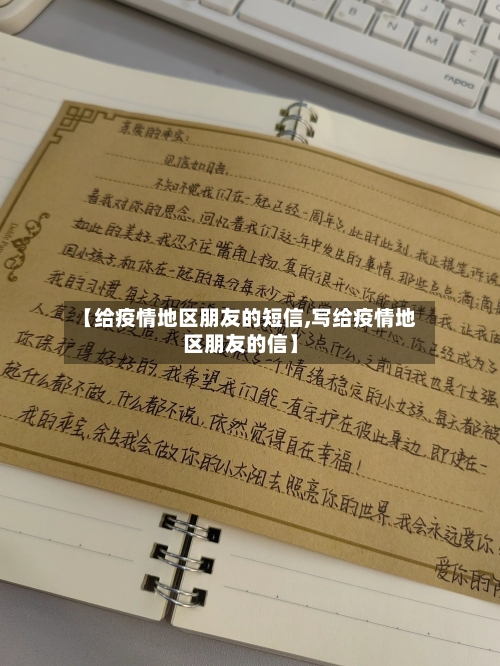 亲爱的乖宝:
见信如晤,
不知不觉我们在一起已经一周年了,此时此刻,我正提笔诉说
着我对你的思念,回忆着我们这一年中发生的事情,那些点点滴滴
如此的美好,我忍不住嘴角上扬,真的很开心你能
着我,让我
因小孩子,和你在一起的每分每秒我都
你已经成为了
我的习惯,每天不和你
点什么,之前的我也是个女强
人,直到
一个情绪稳定的小女孩,每天都被
【给疫情地区朋友的短信,写给疫情地
区朋友的信】
你保护得好好的,我希望我们能一直守护在彼此身边,即使在一
起什么都不做,什么都不说,依然觉得自在幸福!
我的乖宝,余生我会做你的小太阳去照亮你的世界,我会永远爱你,
爱你的
rapoo
B
N
M